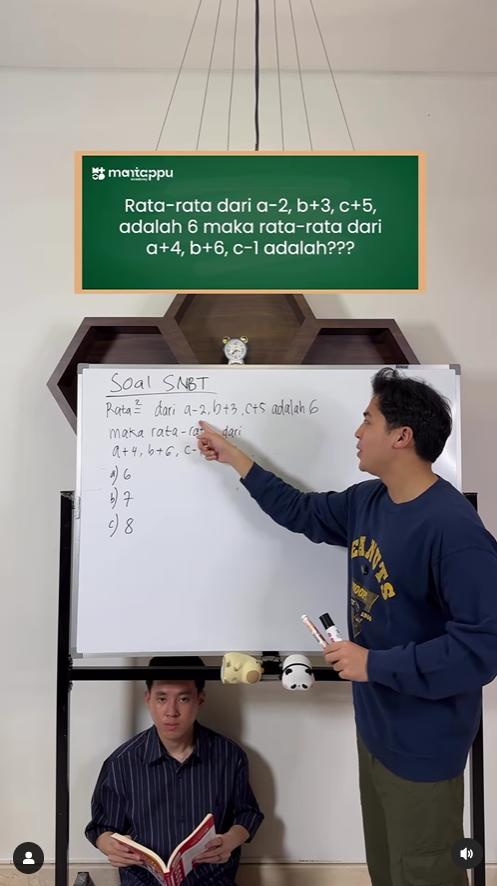 mantappu
academy
Rata-rata dari a-2, b+3, c+5,
adalah 6 maka rata-rata dari
a+4, b+6, c-1 adalah???
Soal SNBT
Rata² dari a-2, b+3, c+5 adalah 6
maka rata-rata dari
a+4, b+6, c-
a) 6
b) 7
c) 8